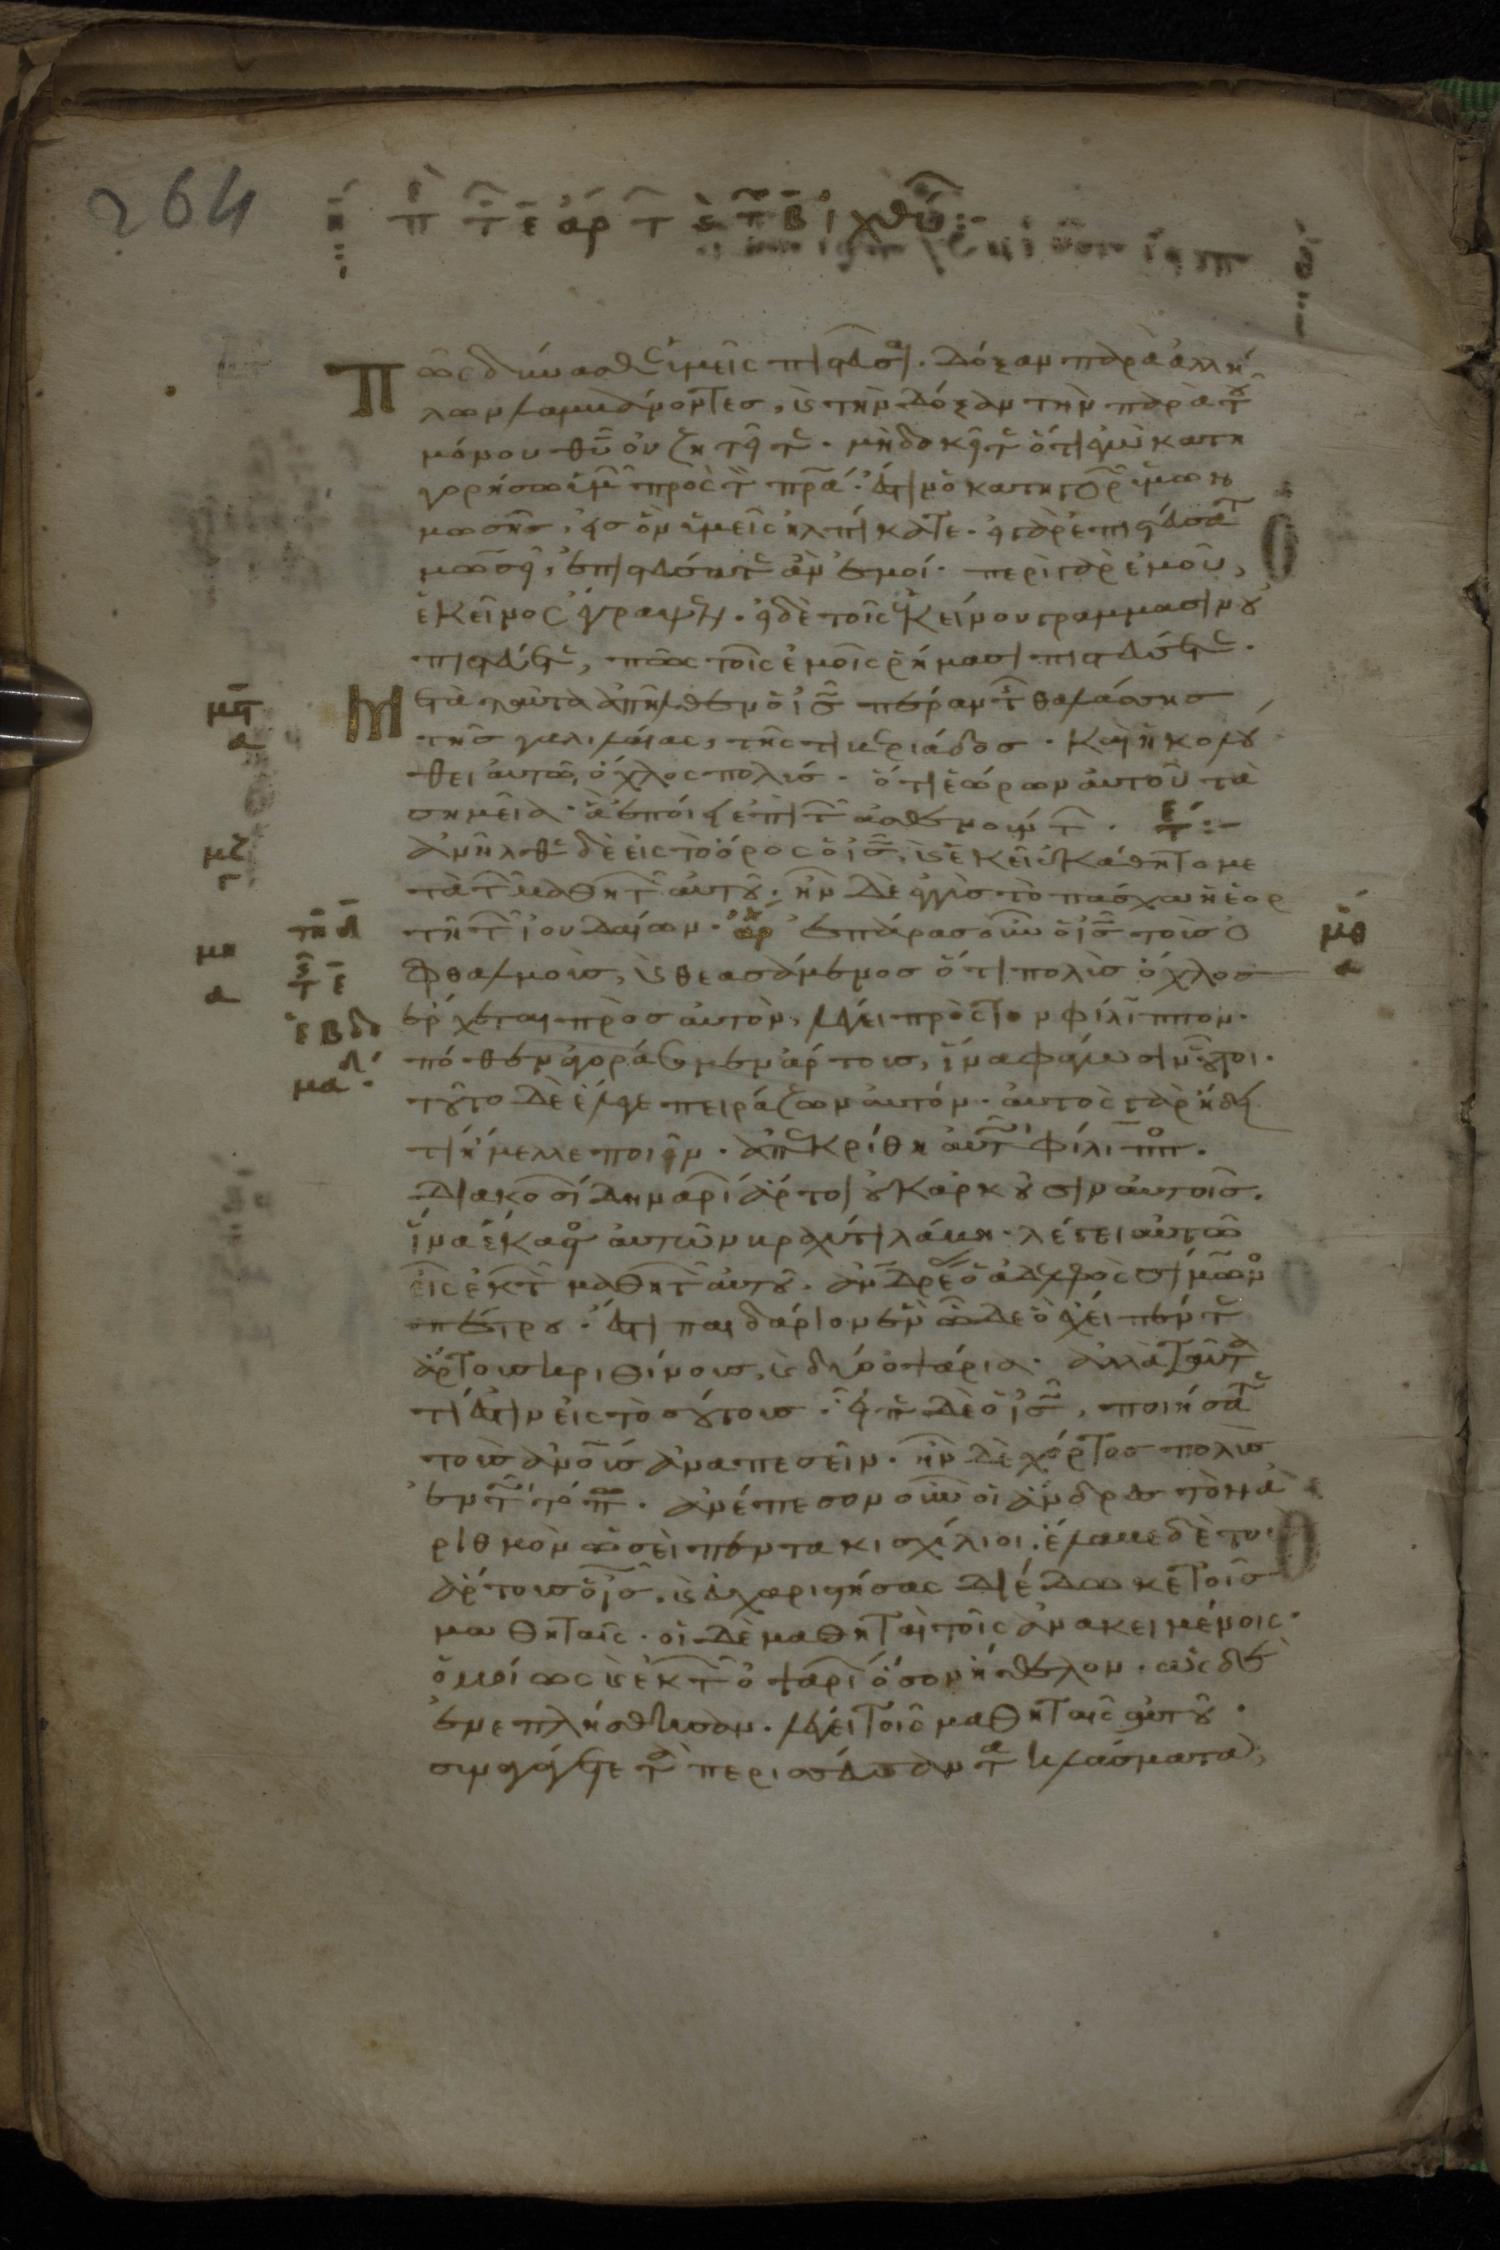 264
η π τ ε αρ τ ς τ β ιχθυ:-
Πῶς δύνασθε ὑμεῖς πιστεῦσαι. δόξαν παρὰ ἀλλή
λων λαμβάνοντες, κ τὴν δόξαν τὴν παρὰ τοῦ
μόνου θῦ οὐ ζητεῖτε. μὴ δοκεῖτε ὅτι ἐγὼ κατη
γορήσω ὑμῶν πρὸς τὸν πρα. ἔστιν ὁ κατηγορῶν ὑμῶν
μωσῆς, εἰς ὃν ὑμεῖς ἠλπίκατε. εἰ γὰρ ἐπιστεύσατε
μωσῆ, ἐπιστεύσητε ἂν ἐμοί. περὶ γὰρ ἐμοῦ,
ἐκεῖνος ἔγραψεν. εἰ δὲ τοῖς ἐκείνου γράμμασιν οὐ
πιστεύετε, πῶς τοῖς ἐμοῖς ῥήμασι πιστεύσετε.
Μετὰ ταῦτα ἀπῆλθεν ὁ ις πέραν τῆς θαλάσσης
τῆς γαλιλαίας, τῆς τιβεριάδος. Καὶ ἠκολού
θει αὐτῶ ὄχλος πολύς. ὅτι ἑώρων αὐτοῦ τὰ
σημεῖα. ἃ ἐποίει ἐπὶ τῶν ἀσθενούντων. τε:-
ἀνῆλθε δὲ εἰς τὸ ὄρος ὁ ις, κ ἐκεῖ ἐκάθητο με
τὰ τῶν μαθητῶν αὐτοῦ. ἦν δὲ ἐγγὺς τὸ πάσχα ἡ ἑορ
τὴ τῶν ἰουδαίων. αρ ἐπάρας οὖν ὁ ις τοὺς ὀ
φθαλμοὺς, κ θεασάμενος ὅτι πολὺς ὄχλος
ἔρχεται πρὸς αὐτὸν, λέγει πρὸς τὸν φίλιππον.
πόθεν ἀγοράσωμεν ἄρτους, ἵνα φάγωσιν οὗτοι.
τοῦτο δὲ ἔλεγε πειράζων αὐτόν. αὐτὸς γὰρ ἤδει
τί ἤμελλε ποιεῖν. ἀπεκρίθη αὐτῶ φίλιππος.
διακοσίων δηναρίων ἄρτοι οὐκ ἀρκοῦσιν αὐτοῖς.
ἵνα ἕκαστος αὐτῶν βραχύ τι λάβη. λέγει αὐτῶ
εἷς ἐκ τῶν μαθητῶν αὐτοῦ. ἀνδρέας ὁ ἀδελφὸς σίμωνος
πέτρου. ἔστι παιδάριον ἓν ὧδε ὃ ἔχει πέντε
ἄρτους κριθίνους, κ δύο ὀψάρια. ἀλλὰ ταῦτα
τί ἐστιν εἰς τοσούτους. εἶπε δὲ ὁ ις, ποιήσατε
τοὺς ἀνοὺς ἀναπεσεῖν. ἦν δὲ χόρτος πολὺς
ἐν τῶ τόπω. ἀνέπεσον οὖν οἱ ἄνδρες τὸν ἀ
ριθμὸν ὡσεὶ πεντακισχίλιοι. ἔλαβε δὲ τοὺς
ἄρτους ὁ ις, κ εὐχαριστήσας διέδωκε τοῖς
μαθηταῖς. οἱ δὲ μαθηταὶ τοῖς ἀνακειμένοις.
ὁμοίως κ ἐκ τῶν ὀψαρίων ὅσον ἤθελον. ὡς δὲ
ἐνεπλήσθησαν. λέγει τοῖς μαθηταῖς αὐτοῦ.
συναγάγετε τὰ περισσεύσαντα κλάσματα,
μς
α
μζ
μη
α
τη δ
τ ε
ἑβδο
μαδ
μθ
α